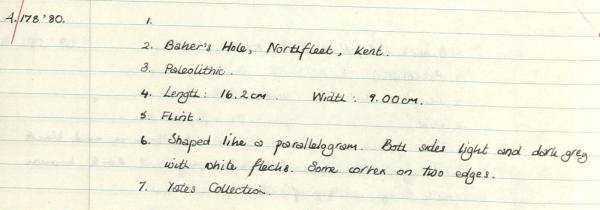 A.178'80. 1.
2. Baker's Hole, Northfleet, Kent.
3. Paleolithic.
4. Length: 16.2cm. Width: 9.00cm.
5. Flint.
6. Shaped like a parallelogram. Both sides light and dark grey
with white flecks. Some cortex on two edges.
7. Yates Collection.